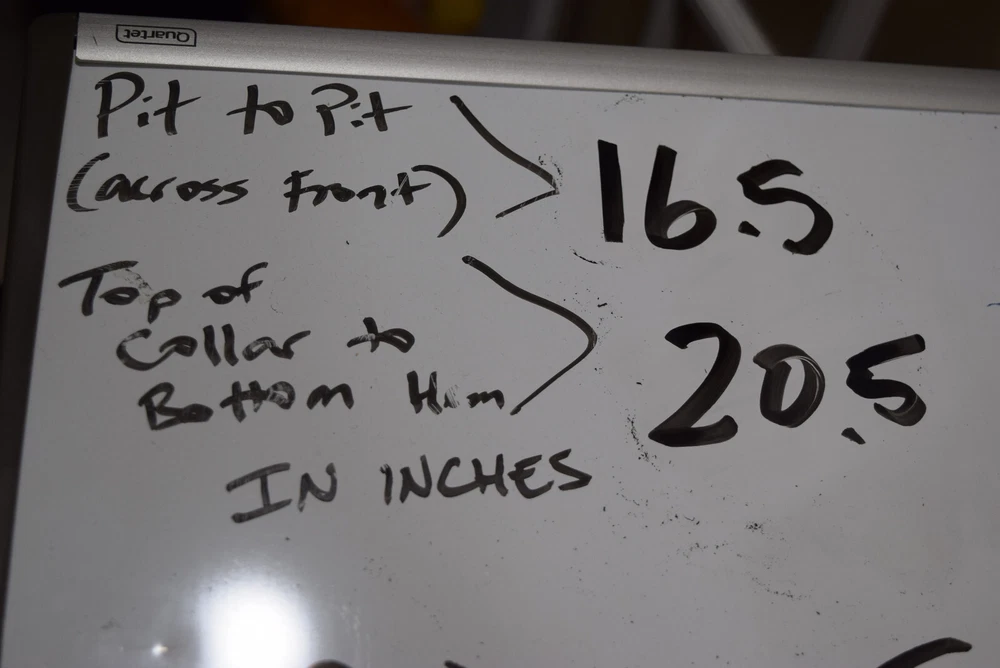 Quartet
Pit to Pit
(across Front)
16.5
Top of
Collar to
Bottom Hem
20.5
IN INCHES